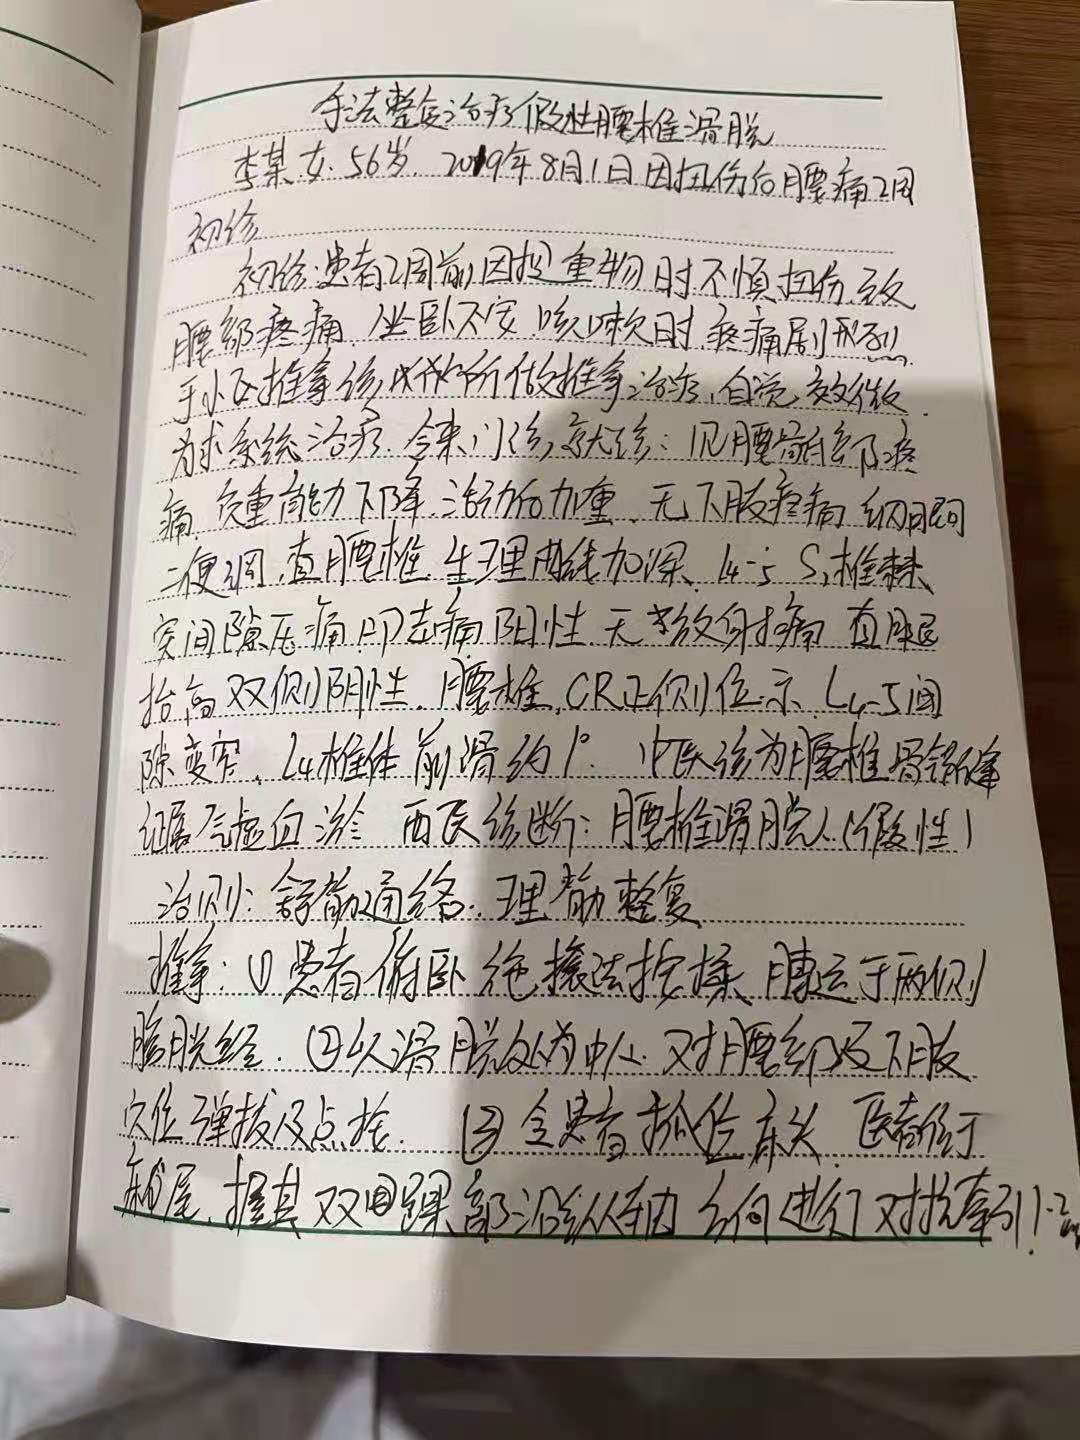 手法整复治疗假性腰椎滑脱
李某 女. 56岁. 2019年8月1日因扭伤后腰痛2周
初诊
初诊:患者2周前因提重物时不慎扭伤.致
腰部疼痛.坐卧不安.咳嗽时.疼痛剧烈
于小区推拿诊所做推拿治疗,自觉效微.
为求系统治疗.今来门诊就诊:见腰骶部疼
痛.负重能力下降.活动后加重.无下肢疼痛 纳眠可
二便调,查腰椎生理曲线加深、L4-5 S1椎棘
突间隙压痛 叩击痛阳性 无放射痛 直腿
抬高双侧阴性.腰椎CR正侧位示 L4-5间
隙变窄.L4椎体前滑约1°. 中医诊为腰椎骨错缝
证属气虚血淤 西医诊断:腰椎滑脱(假性)
治则:舒筋通络.理筋整复
推拿:①患者俯卧 滚法按揉 于两侧
膀胱经.②以滑脱处为中心.对腰部及下肢
穴位弹拨及点按. ③令患者 床头.医者位于
床尾.握其双踝部沿纵轴方向进行对抗牵引1-2